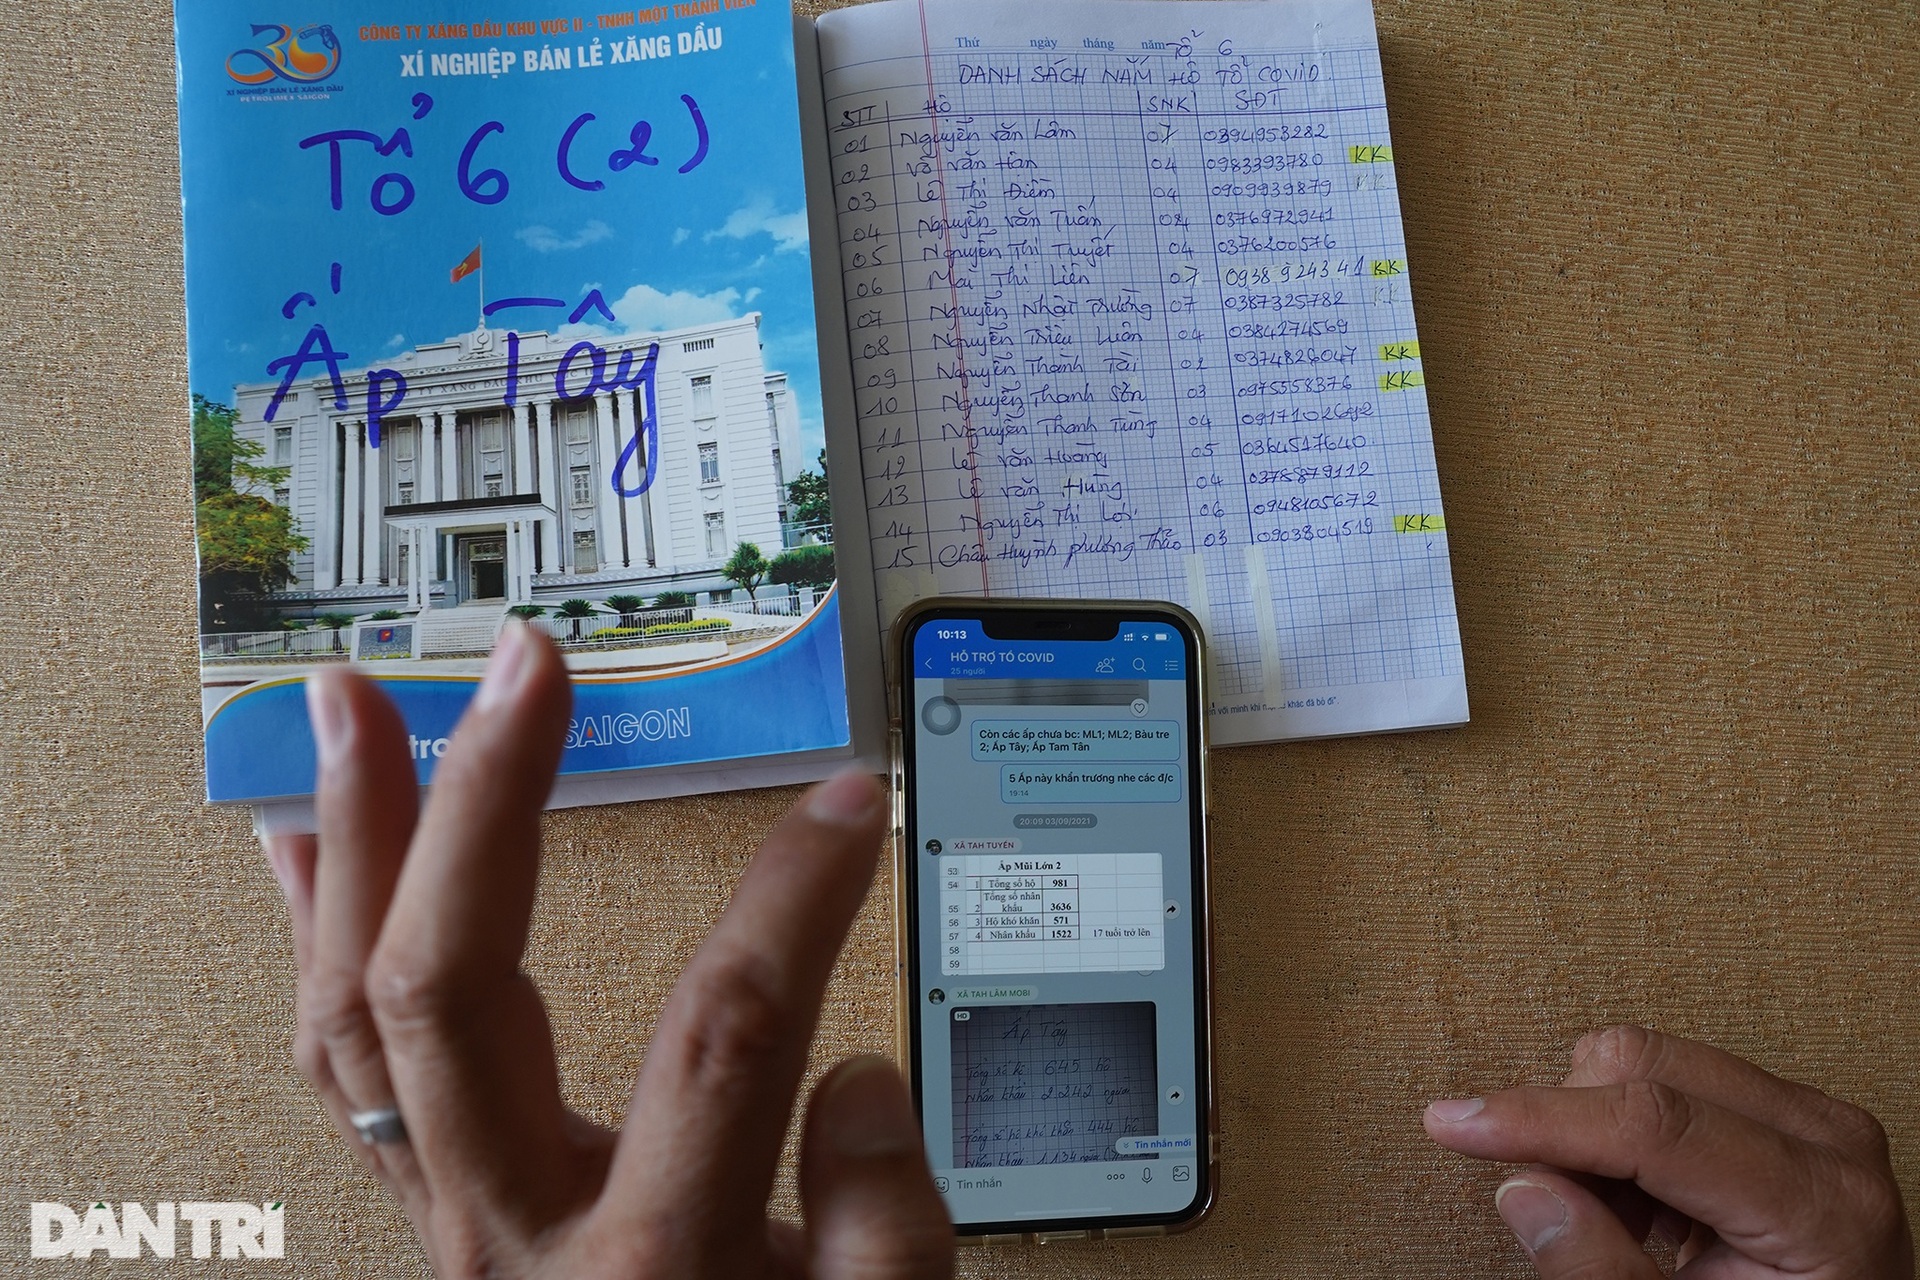 CÔNG TY XĂNG DẦU KHU VỰC II - TNHH MỘT THÀNH VIÊN
XÍ NGHIỆP BÁN LẺ XĂNG DẦU
30
XÍ NGHIỆP BÁN LẺ XĂNG DẦU
PETROLIMEX SAIGON
Tổ 6 (2)
Ấp Tây
CÔNG TY XĂNG DẦU KHU
SAIGON
Thứ ngày tháng năm
Tổ 6
DANH SÁCH NẮM HỘ TỔ COVID
STT Hộ SNK SĐT
01 Nguyễn Văn Lâm 07 0394953282
02 Võ Văn Hân 04 0983393780 KK
03 Lê Thị Điểm 04 0909939879 KK
04 Nguyễn Văn Tuấn 04 0376972941
05 Nguyễn Thị Tuyết 04 0376200576
06 Mai Thị Liên 07 0938924341 KK
07 Nguyễn Nhật Trường 07 0387325782 KK
08 Nguyễn Triều Luân 04 0384274569
09 Nguyễn Thành Tài 02 0374826047 KK
10 Nguyễn Thanh Sơn 03 0975558376 KK
11 Nguyễn Thanh Tùng 04
12 Lê Văn Hoàng 05 0364517640
13 Lê Văn Hùng 04 0378879112
14 Nguyễn Thị Lới 06 0948105672
15 Châu Huỳnh Phương Thảo 03 0903804519 KK
với mình khi khác đã bỏ đi".
10:13
HỖ TRỢ TỔ COVID
25 người
Còn các ấp chưa bc: ML1; ML2; Bàu tre
2; Ấp Tây; Ấp Tam Tân
5 Ấp này khẩn trương nhe các đ/c
19:14
20:09 03/09/2021
XÃ TAH TUYỀN
53 Ấp Mũi Lớn 2
54 1 Tổng số hộ 981
55 2 Tổng số nhân khẩu 3636
56 3 Hộ khó khăn 571
57 4 Nhân khẩu 1522 17 tuổi trở lên
58
59
XÃ TAH LÂM MOBI
HD
Ấp Tây
Tổng số hộ 645 hộ
Nhân khẩu 2.242 người
Tổng số hộ khó khăn: 444 hộ
Nhân khẩu 1.134 người
Tin nhắn mới
Tin nhắn
DÂN TRÍ